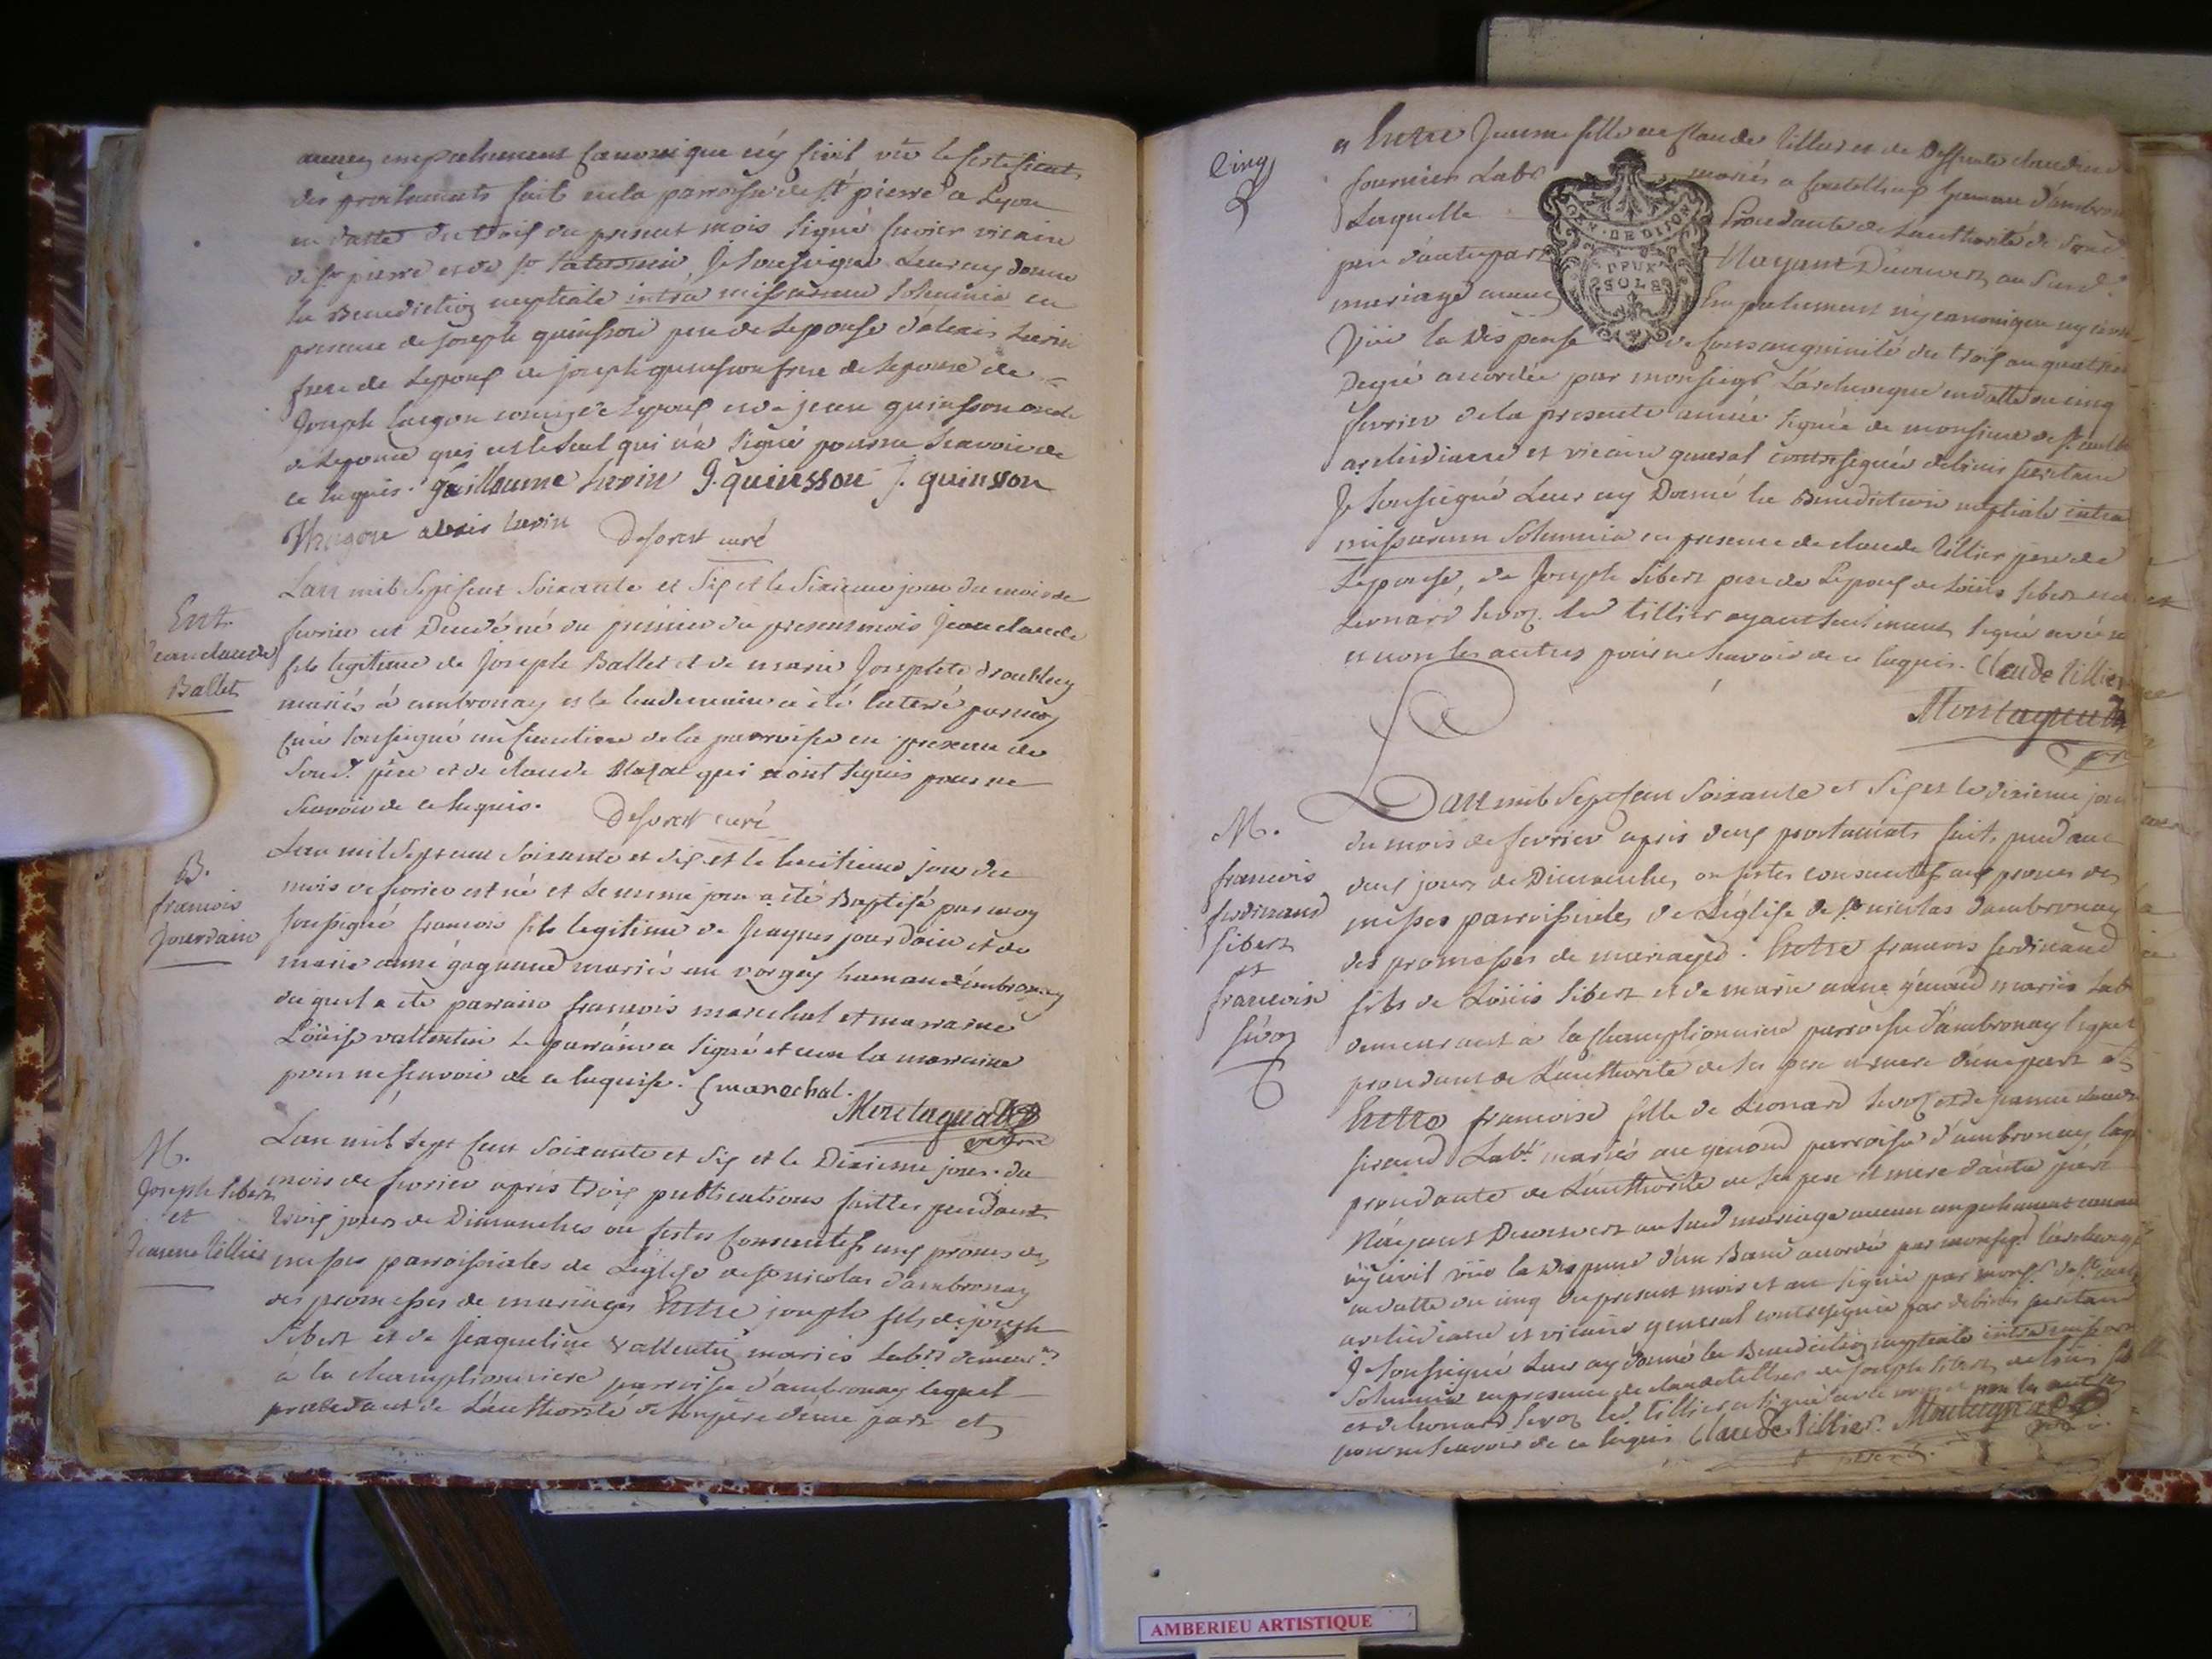 aucun empechement canonique ny civil vü le certificat
des proclamats fait en la parroisse de St pierre a Lyon
en datte du trois du present mois signé vicaire
de St pierre et de St Saturnin, Je soussigné Leur ay donné
la Benediction nuptiale intra missarum Solemnia en
presence de Joseph quinsson pere de Lepouse d'alexis
frere de Lepoux de joseph quinsson frere de Lepouse de
Joseph de Lepoux et de jean quinsson oncle
de Lepouse qui est le seul qui n'a signé pour ne scavoir de
ce enquis. Guillaume J. quinsson J. quinson
alexis
Deforest curé
Ent.
Jean claude
Ballet
Lan mil sept cent soixante et dix et le sixieme jour du mois de
fevrier est decedé né du premier du present mois Jean claude
fils legitime de Joseph Ballet et de marie Josephte
mariés à ambronay et le lendemain a été enterré par moy
curé soussigné au cimetiere de la parroisse en presence de
Sond. père et de claude qui n'ont signés pour ne
scavoir de ce enquis.
Deforest curé
B.
francois
Jourdain
Lan mil sept cent soixante et dix et le huitieme jour du
mois de fevrier est né et le meme jour a été Baptisé par moy
soussigné francois fils legitime de Jaques jourdain et de
marie anne mariés au vorgey hameau d'ambronay
duquel a ete parrain francois marechal et marraine
Loüise vallentin le parrain a signé et non la marraine
pour ne scavoir de ce enquise. f marechal.
Montagnat
M.
Joseph Sibert
et
Jeanne tillier
Lan mil sept cent soixante et dix et le Dixieme jour du
mois de fevrier après trois publications faittes pendant
trois jours de Dimanches ou festes consecutifs aux prones des
messes parroissiales de Leglise de St nicolas d'ambronay
des promesses de mariages Entre joseph fils de joseph
Sibert et de Jaqueline vallentin mariés Labrs demeurants
à la championniere parroisse d'ambronay lequel
procedant de Lauthorité de son père d'une part et
Cinq
Entre Jeanne fille de claude tillier et de Deffunte claudine
fournier Labr mariés a hameau d'ambronay
Laquelle Procedante de Lauthorité de sond.
pere d'autre part N'ayant Decouvert au Surd.
mariage aucun Empechement ny canonique ny civil
Vüe la Dispense de consanguinité du trois au quatrieme
Degré accordée par monseigr L'archeveque en datte du cinq
fevrier de la presente année signée de monsieur de St
archidiacre et vicaire general contresignée secretaire
Je soussigné Leur ay Donné la Benediction nuptiale intra
missarum Solemnia en presence de claude tillier pere de
Lepouse, de Joseph Sibert pere de Lepoux de Loüis Sibert et de
Leonard Led. tillier ayant seulement signé
et non les autres pour ne scavoir de ce enquis. Claude tillier
Montagnat
GEN. DE DIJON
DEUX
SOLS
M.
francois
ferdinand
Sibert
et
francoise
Lan mil sept cent soixante et dix et le dixieme jour
du mois de fevrier après deux proclamats fait pendant
deux jours de Dimanches ou festes consecutifs aux prones des
messes parroissiales de Léglise de St nicolas d'ambronay
des promesses de mariages. Entre francois ferdinand
fils de Loüis Sibert et de marie anne mariés Labr
demeurant à la championniere parroisse d'ambronay lequel
procedant de L'authorité de ses pere et mere d'une part et
Entre francoise fille de Leonard et de jeanne
Labr mariés au genoud parroisse d'ambronay laquelle
procedante de L'authorité de ses pere et mere d'autre part
N'ayant Decouvert au Surd mariage aucun empechement canonique
ny civil vüe la Dispense d'un Banc accordée par monseigr L'archeveque
en datte du cinq du present mois et an signée par monsr de St
archidiacre et vicaire general contresignée par secretaire
Je soussigné Leur ay donné la Benediction nuptiale intra missarum
Solemnia en presence de claude tillier de joseph Sibert de Loüis Sibert
et de Leonard Led. tillier a signé les autres
pour ne scavoir de ce enquis Claude tillier. Montagnat
AMBERIEU ARTISTIQUE